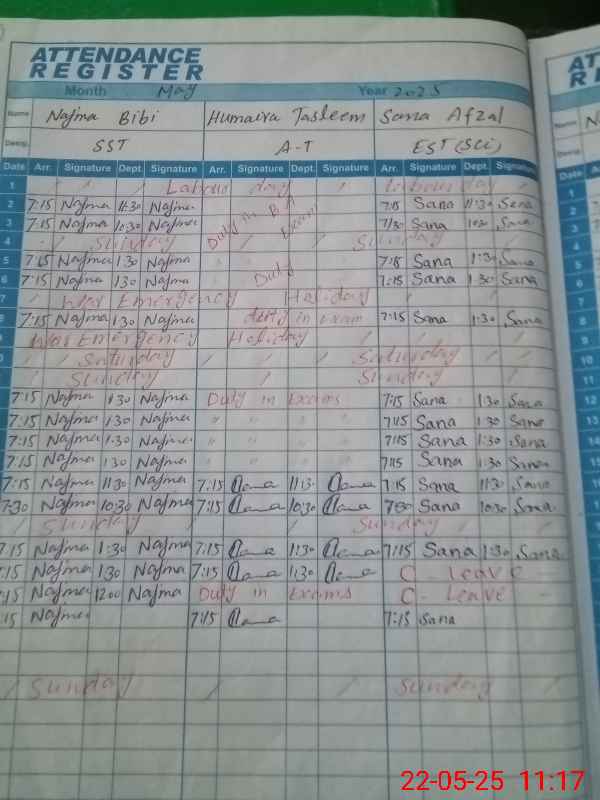 ATTENDANCE
REGISTER
Month May Year 2025
Name Najma Bibi Humaira Tasleem Sana Afzal
Desig. SST A-T EST (SCi)
Date Arr. Signature Dept. Signature Arr. Signature Dept. Signature Arr. Signature Dept. Signature
1 Labour day Labour day
2 7:15 Najma 11:30 Najma Duty in 7:15 Sana 11:30 Sana
3 7:15 Najma 10:30 Najma Exam 7:30 Sana 10:30 Sana
4 Sunday Sunday
5 7:15 Najma 1:30 Najma " " 7:15 Sana 1:30 Sana
6 7:15 Najma 1:30 Najma Duty 7:15 Sana 1:30 Sana
7 War Emergency Holiday
8 7:15 Najma 1:30 Najma duty in Exam 7:15 Sana 1:30 Sana
9 War Emergency Holiday
Saturday Saturday
Sunday Sunday 11
7:15 Najma 1:30 Najma Duty in Exams 7:15 Sana 1:30 Sana 12
7:15 Najma 1:30 Najma " " " 7:15 Sana 1:30 Sana 13
7:15 Najma 1:30 Najma " " " 7:15 Sana 1:30 Sana
7:15 Najma 1:30 Najma " " " 7:15 Sana 1:30 Sana
7:15 Najma 11:30 Najma 7:15 11:30 7:15 Sana 11:30 Sana
7:30 Najma 10:30 Najma 7:15 10:30 7:30 Sana 10:30 Sana
Sunday Sunday
7:15 Najma 1:30 Najma 7:15 1:30 7:15 Sana 1:30 Sana
7:15 Najma 1:30 Najma 7:15 1:30 C - Leave
7:15 Najma 12:00 Najma Duty in Exams C - Leave
7:15 Najma 7:15 7:15 Sana
Sunday Sunday
22-05-25 11:17